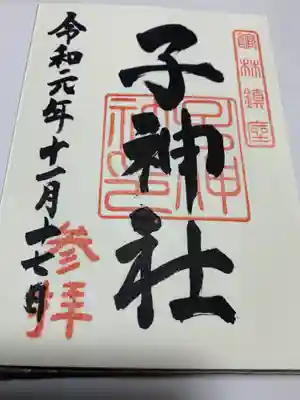 林鎮座
子神社
子神社印
令和元年十一月十七日
参拝